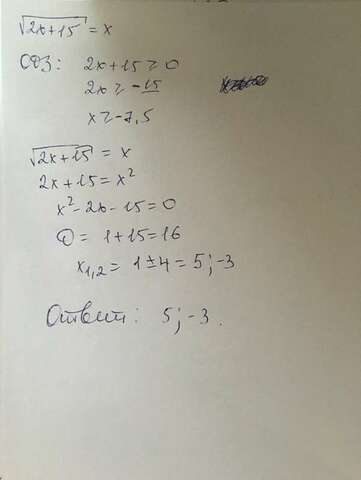 √2x+15 = x
ОДЗ: 2x+15 ≥ 0
2x ≥ -15
x ≥ -7,5
√2x+15 = x
2x+15 = x²
x² - 2x - 15 = 0
D = 1+15 = 16
x₁,₂ = 1 ± 4 = 5; -3
Ответ: 5; -3.